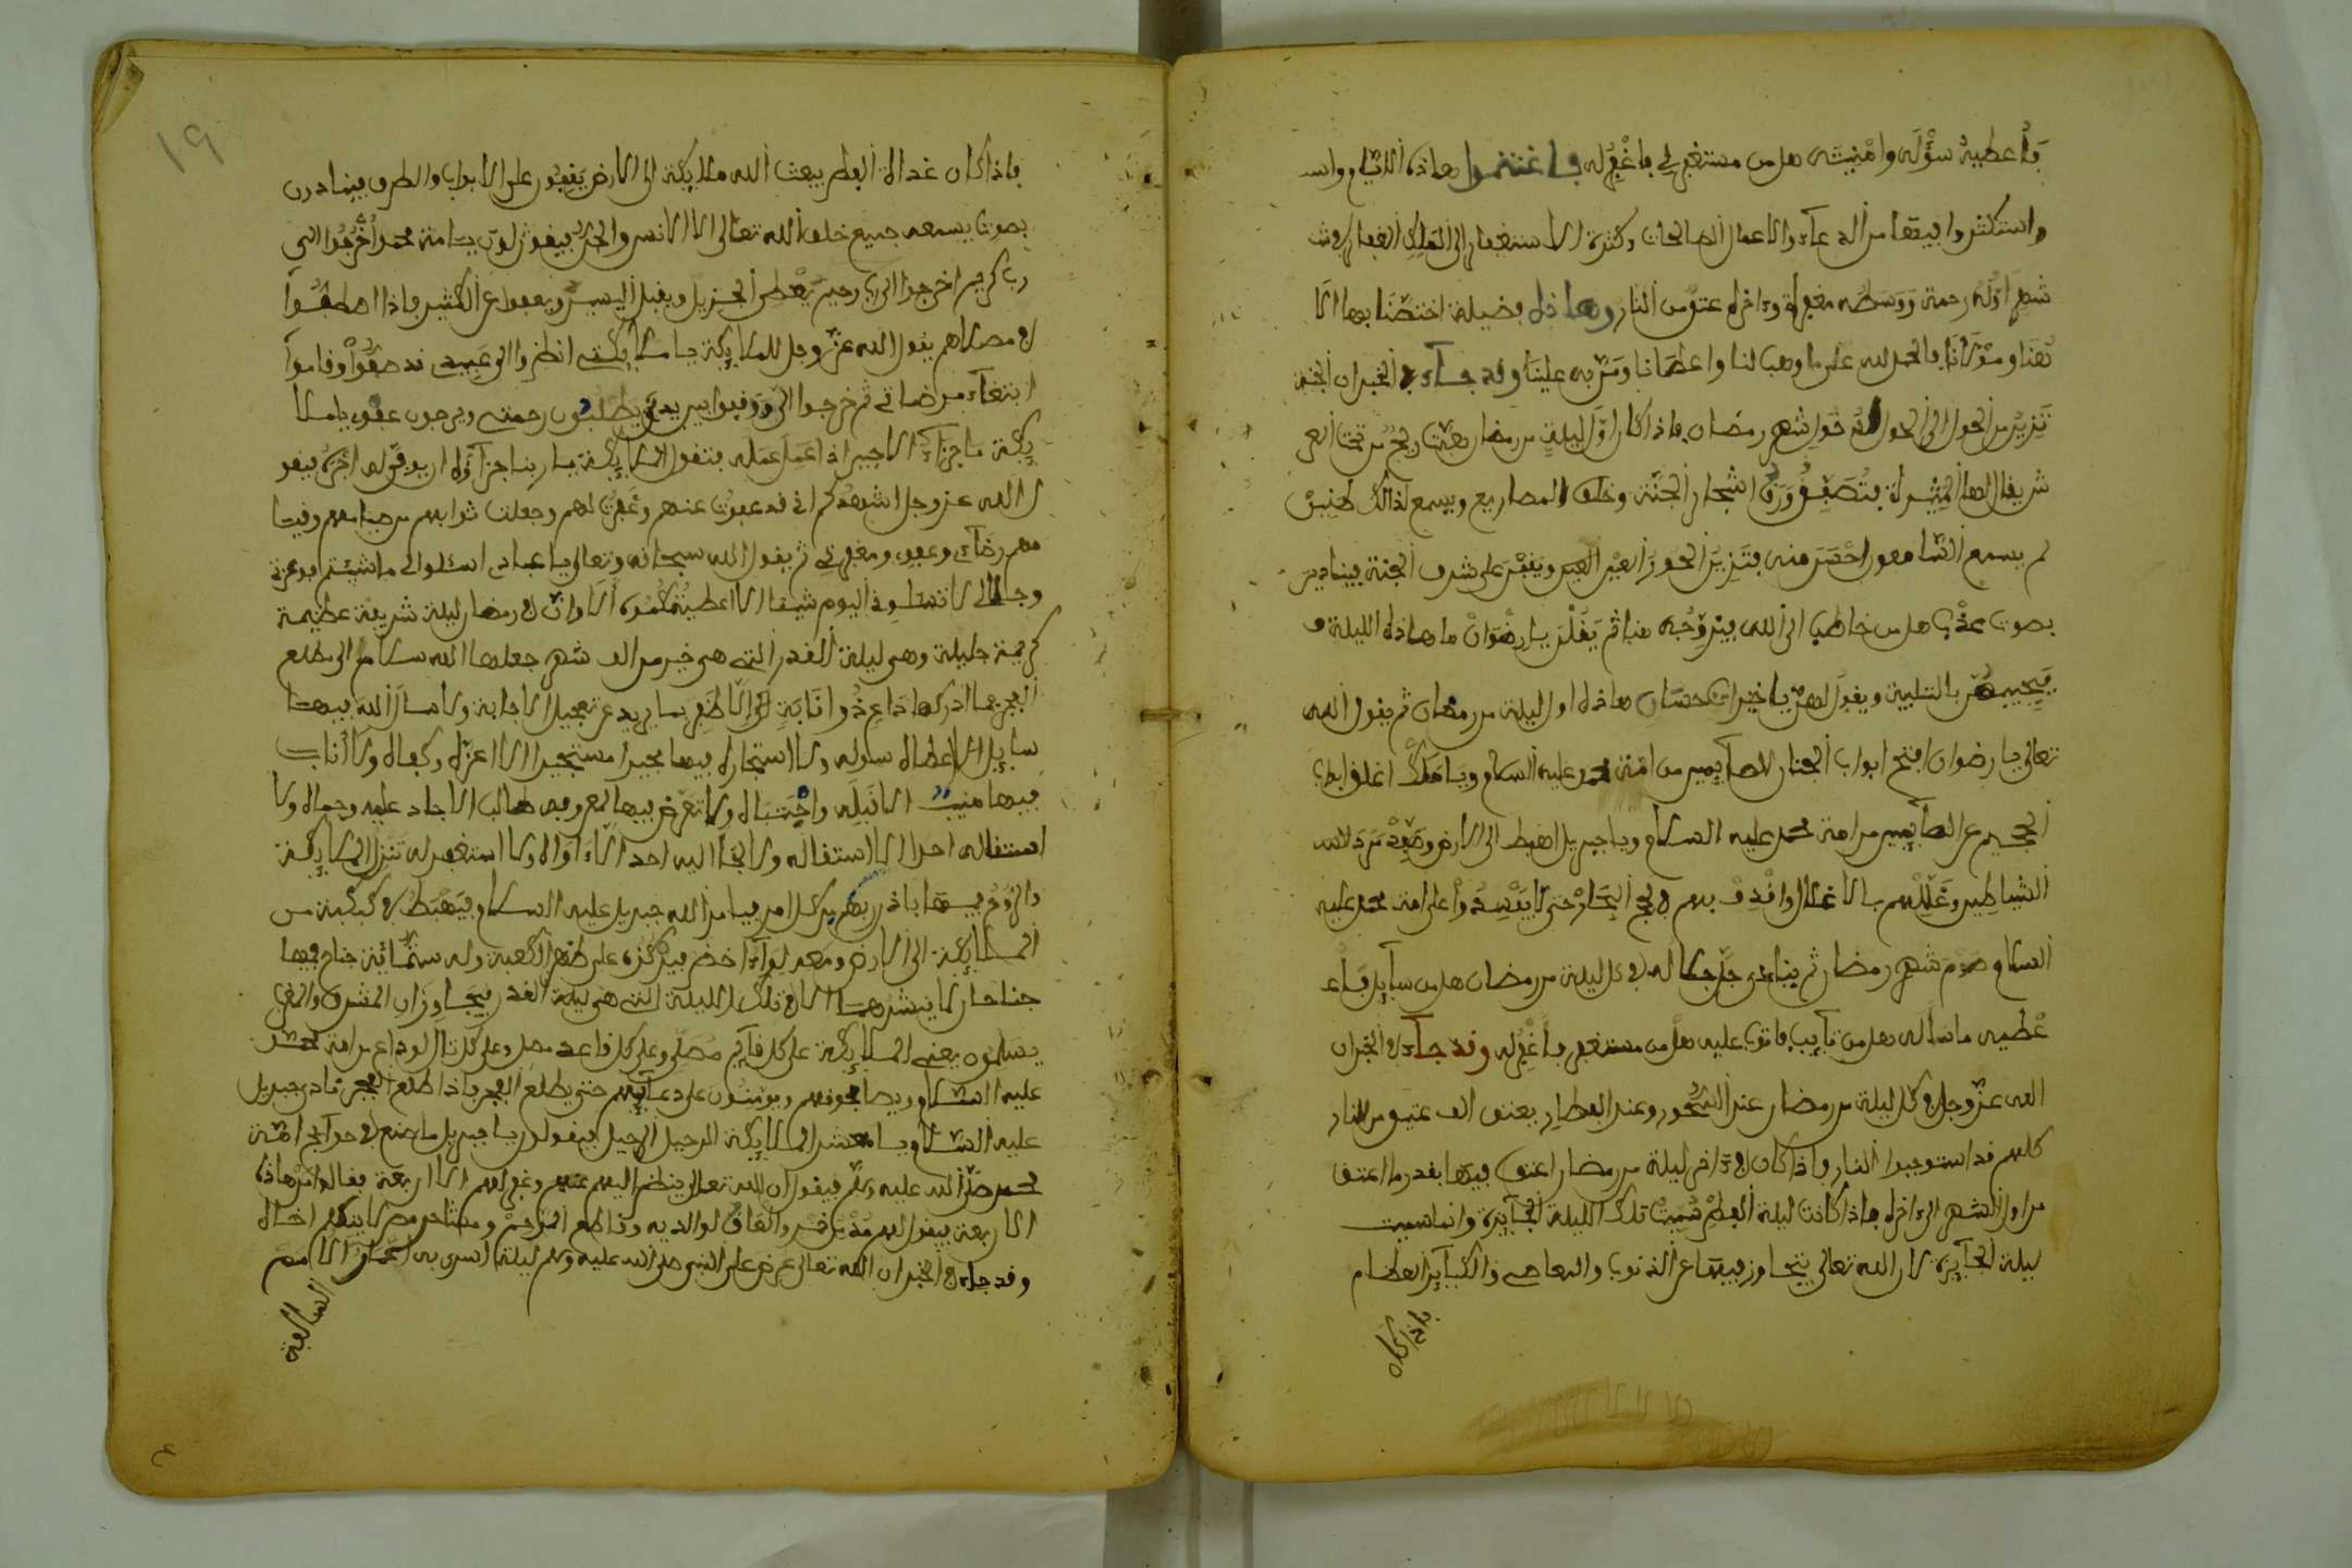 فأعطيه سؤله وأمنيته هل من مستغفر لي فأغفر له فاغتنموا هاذه الأيام واسـ
واستكثروا فيها من الدعاء والاعمال الصالحات وكثرة الاستغفار إلى الملك الغفار
شهر أوله رحمة ووسطه مغفرة وءاخره عتق من النار وهاذه فضيلة اختصنا بها الا
هنا ومولانا فالحمد لله على ما وهب لنا واعطانا ومن به علينا وقد جاء في الخبر ان الجنة
تزين من الحول الى الحول لدخول شهر رمضان فاذا كان اول ليلة من رمضان هبت ريح من تحت العر
ش يقال لها المثيرة فتصفق ورق اشجار الجنة وحلق المصاريع ويسمع لذالك طنين
لم يسمع السامعون احسن منه فتزين الحور العين ويقفن على شرف الجنة فينادين
بصوت عذب هل من خاطب الى الله فيزوجه منا ثم يقلن يا رضوان ما هاذه الليلة فـ
فيجيبهن بالتلبية ويقول لهن يا خيرات حسان هاذه اول ليلة من رمضان ثم يقول الله
تعالى يا رضوان افتح ابواب الجنان للصايمين من امة محمد عليه السلام ويا مالك اغلق ابواب
الجحيم عن الصايمين من امة محمد عليه السلام ويا جبريل اهبط الى الارض وصفد مردة
الشياطين وغللهم بالاغلال واقذف بهم في لجج البحار حتى لا يفسدوا على امة محمد عليه
السلام صوم شهر رمضان ثم ينادي جل جلاله في كل ليلة من رمضان هل من سايل فأ
عطيه ما سأل هل من تايب فاتوب عليه هل من مستغفر فأغفر له وقد جاء في الخبر ان
الله عز وجل في كل ليلة من رمضان عند السحور وعند الافطار يعتق الف عتيق من النار
كلهم قد استوجبوا النار فاذا كان في ءاخر ليلة من رمضان اعتق فيها بقدر ما اعتق
من اول الشهر الى ءاخره فاذا كانت ليلة الفطر سميت تلك الليلة الجايزة وانما سميت
ليلة الجايزة لان الله تعالى يتجاوز فيها عن الذنوب والمعاصي والكباير العظام
فاذا كان
١٩
فاذا كان غداة الفطر يبعث الله ملايكة الى الارض يقفون على الابواب والطرق فينادون
بصوت يسمعه جميع خلق الله تعالى الا الانس والجن فيقولون يا امة محمد اخرجوا الى
رب كريم اخرجوا الى رب رحيم يعطي الجزيل ويقبل اليسير ويعفوا عن الكثير فاذا اصطفوا
في مصلاهم يقول الله عز وجل للملايكة يا ملايكتي انظروا الى عبيدي قد صفوا وقاموا
ابتغاء مرضاتي ثم خرجوا الي ووقفوا بين يدي يطلبون رحمتي ويرجون عفوي يا ملا
يكتي ما جزاء الاجير اذا عمل عمله فتقول الملايكة يا ربنا جزاؤه ان يوفى له اجره فيقو
ل الله عز وجل اشهدكم اني قد عفوت عنهم وغفرت لهم وجعلت ثوابهم من صيامهم وقيا
مهم رضاي وعفوي ومغفرتي ثم يقول الله سبحانه وتعالى يا عبادي اسئلوني ما شيتم فوعزتي
وجلالي لا تسئلوني اليوم شيئا الا اعطيتكموه الا وان في رمضان ليلة شريفة عظيمة
كريمة جليلة وهي ليلة القدر التي هي خير من الف شهر جعلها الله سلام الى مطلع
الفجر فما ادركها داع ذو انابة الا ظفر بما يريد من تعجيل الاجابة ولا سأل الله فيها
سايل الا اعطاه سوله ولا استجاره فيها مستجيرا الا اعزه وكفاه ولا اناب
فيها منيب الا قبله واجتباه ولا تعرض فيها لمعروفه طالب الا جاد عليه وحباه ولا
استقاله احد الا استقاله ولا لجأ اليه احد الا ءاواه ولا استغفر له تنزل الملايكة
والروح فيها باذن ربهم من كل امر فيامر الله جبريل عليه السلام فيهبط في كبكبة من
الملايكة الى الارض ومعه لواء اخضر فيركزه على ظهر الكعبة وله ستماية جناح فيها
جناحان لا ينشرهما الا في تلك الليلة التي هي ليلة القدر فيجاوزان المشرق والمغرب
يسلمون يعني الملايكة على كل قايم مصلي وعلى كل قاعد مصل وعلى كل تال من امة محمد
عليه السلام ويصافحونهم ويومنون على دعايهم حتى يطلع الفجر فاذا طلع الفجر نادى جبريل
عليه السلام يا معشر الملايكة الرحيل الرحيل فيقولون يا جبريل ما صنع في حوايج امة
محمد صلى الله عليه وسلم فيقول ان الله تعالى ينظر اليهم وغفر لهم الا اربعة فقالوا من هاذه
الاربعة فيقول لهم مدمن خمر والعاق لوالديه وقاطع الرحم ومشاحن
وقد جاء في الخبر ان الله تعالى عرض على النبي صلى الله عليه وسلم ليلة اسري به اعمار الامم
السالفة